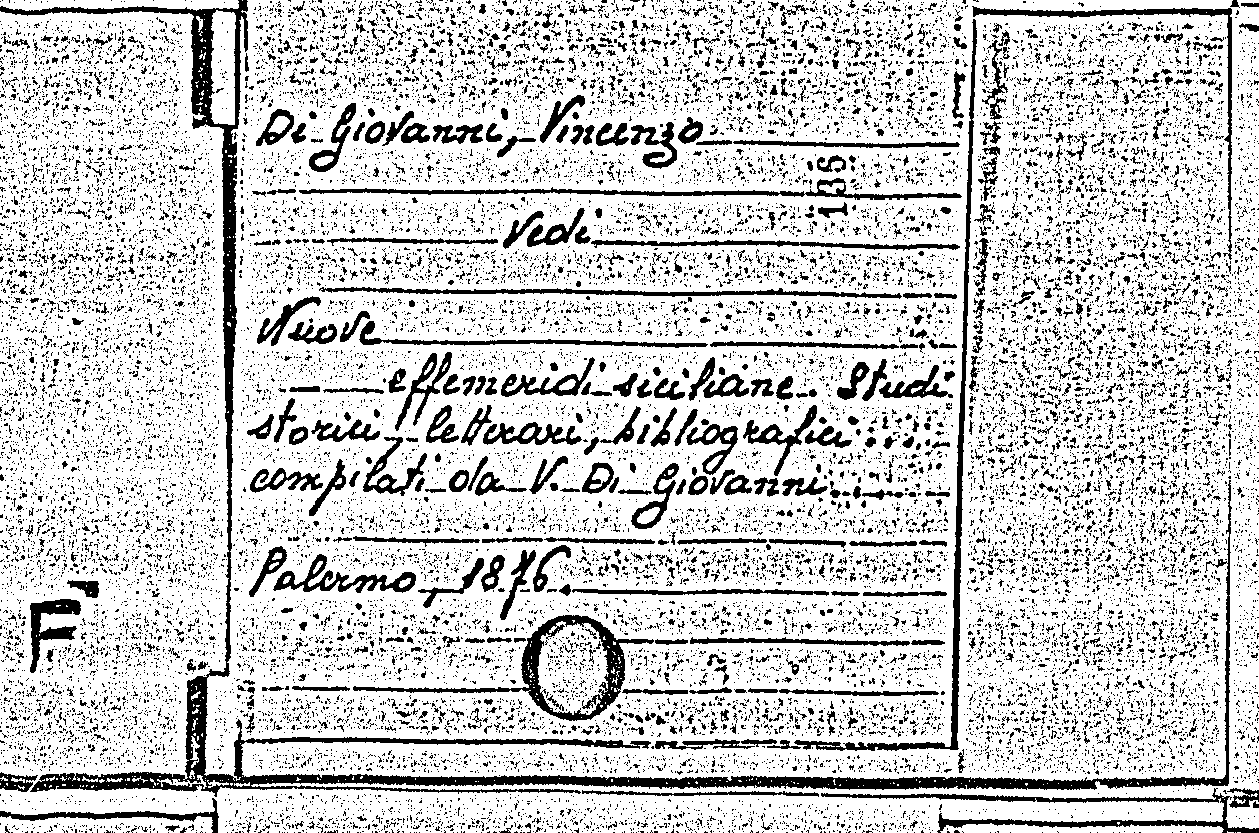 Di Giovanni, Vincenzo
136
Vedi
Nuove
effemeridi siciliane. Studi
storici, letterari, bibliografici ....
compilati da V. Di Giovanni....
Palermo, 1876.
F